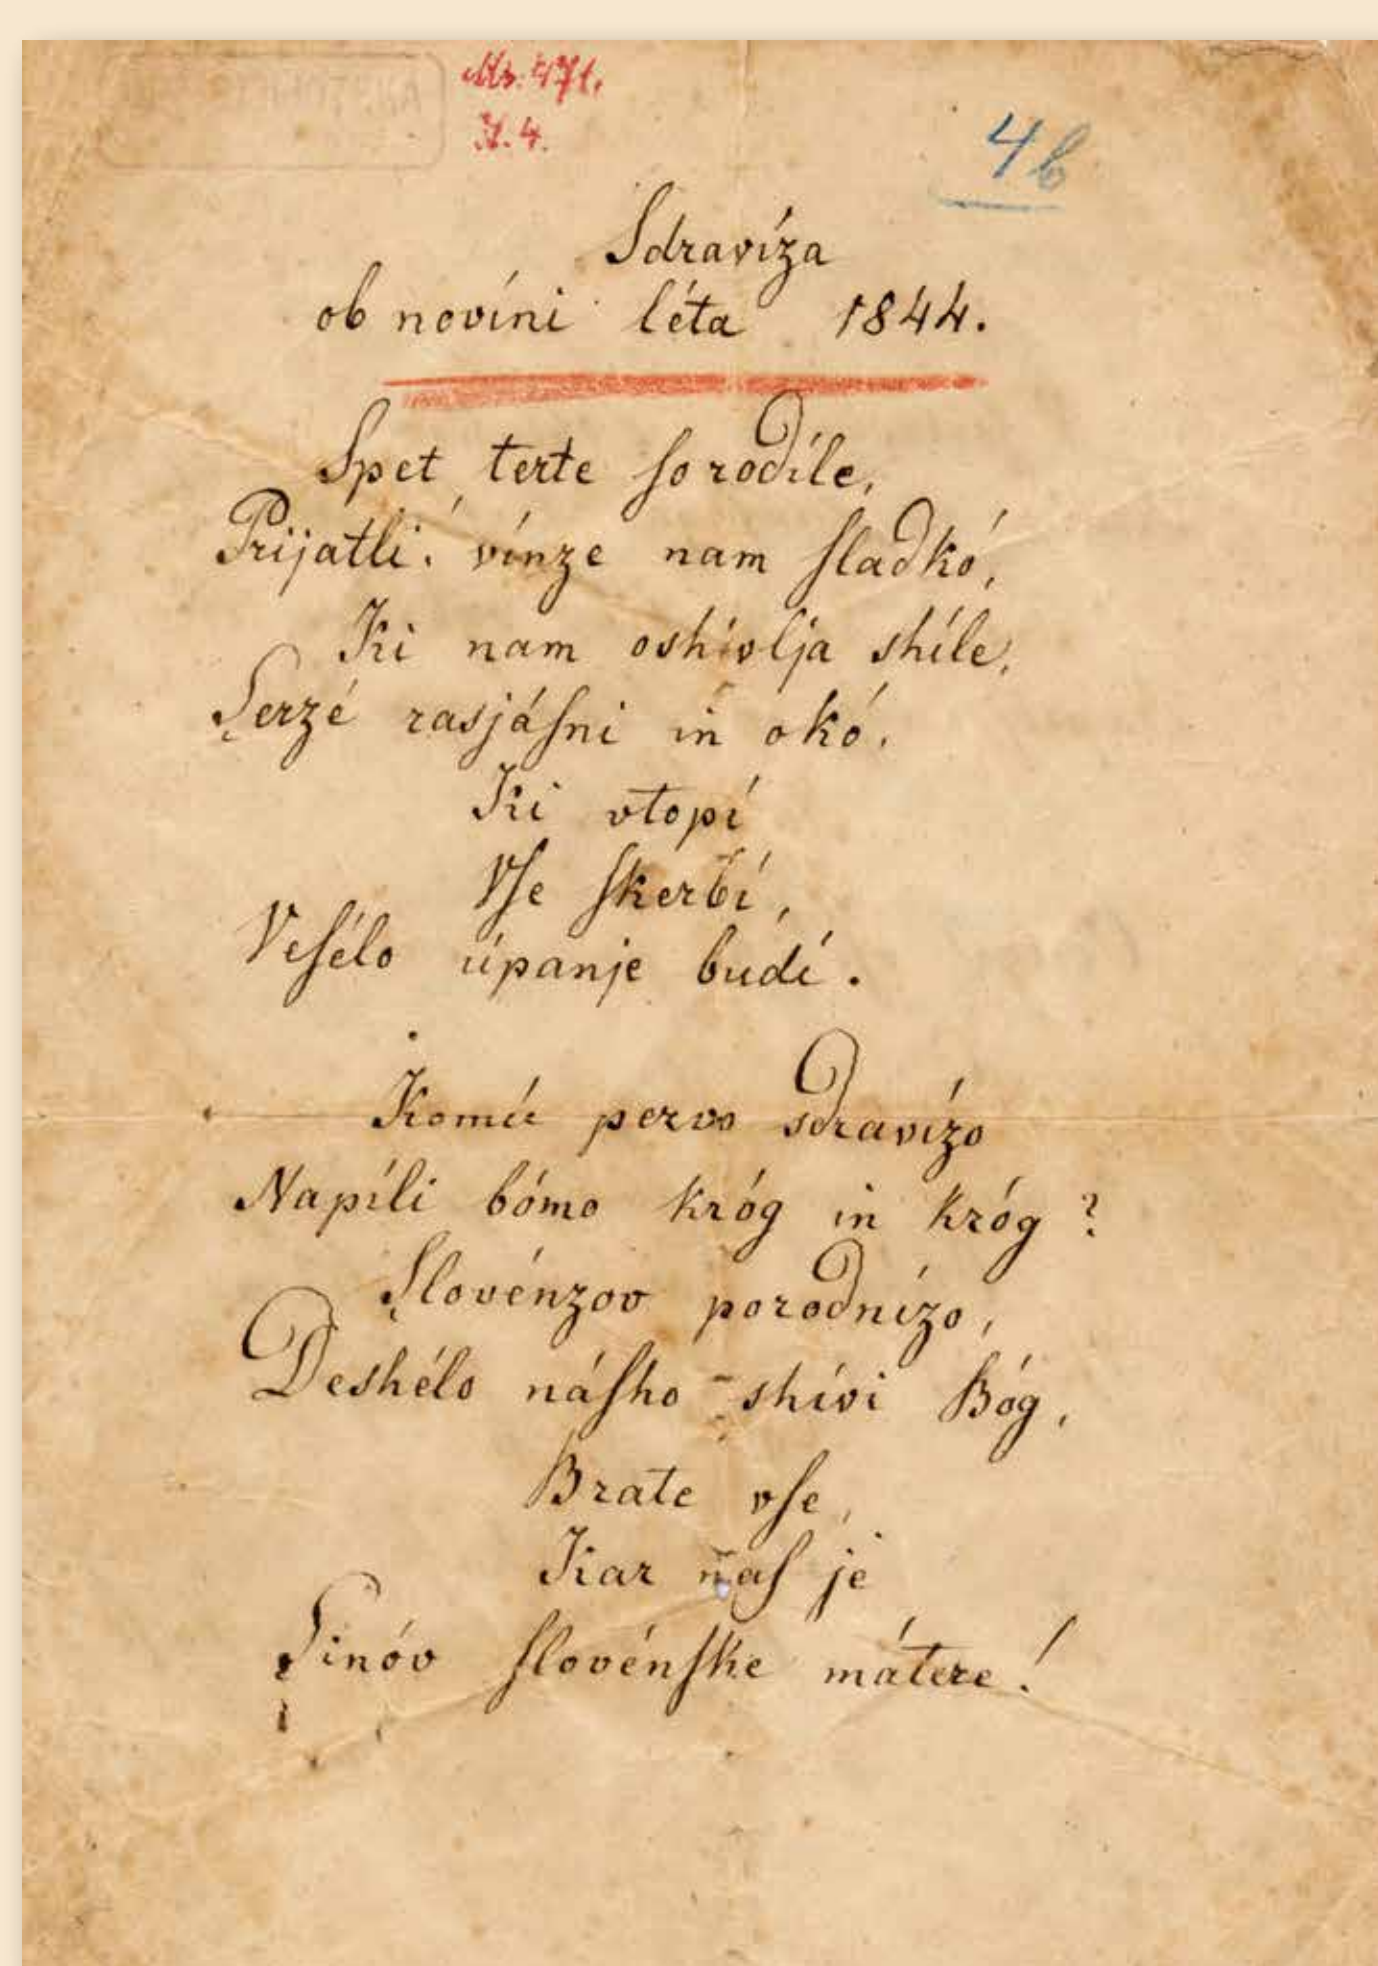 Ms. 471.
N. 4.
4b
Sdravíza
ob novíni léta 1844.
Spet terte ſo rodíle,
Prijatli! vínze nam ſladkó,
Ki nam oshívlja shíle,
Serzé rasjáſni in okó,
Ki vtopí
Vſe ſkerbí,
Veſélo úpanje budí.
Komú pervo sdravízo
Napíli bómo króg in króg?
Slovénzov porodnízo,
Deshélo náſho shívi Bóg,
Brate vſe,
Kar naſ je
Sinóv ſlovénſke mátere!